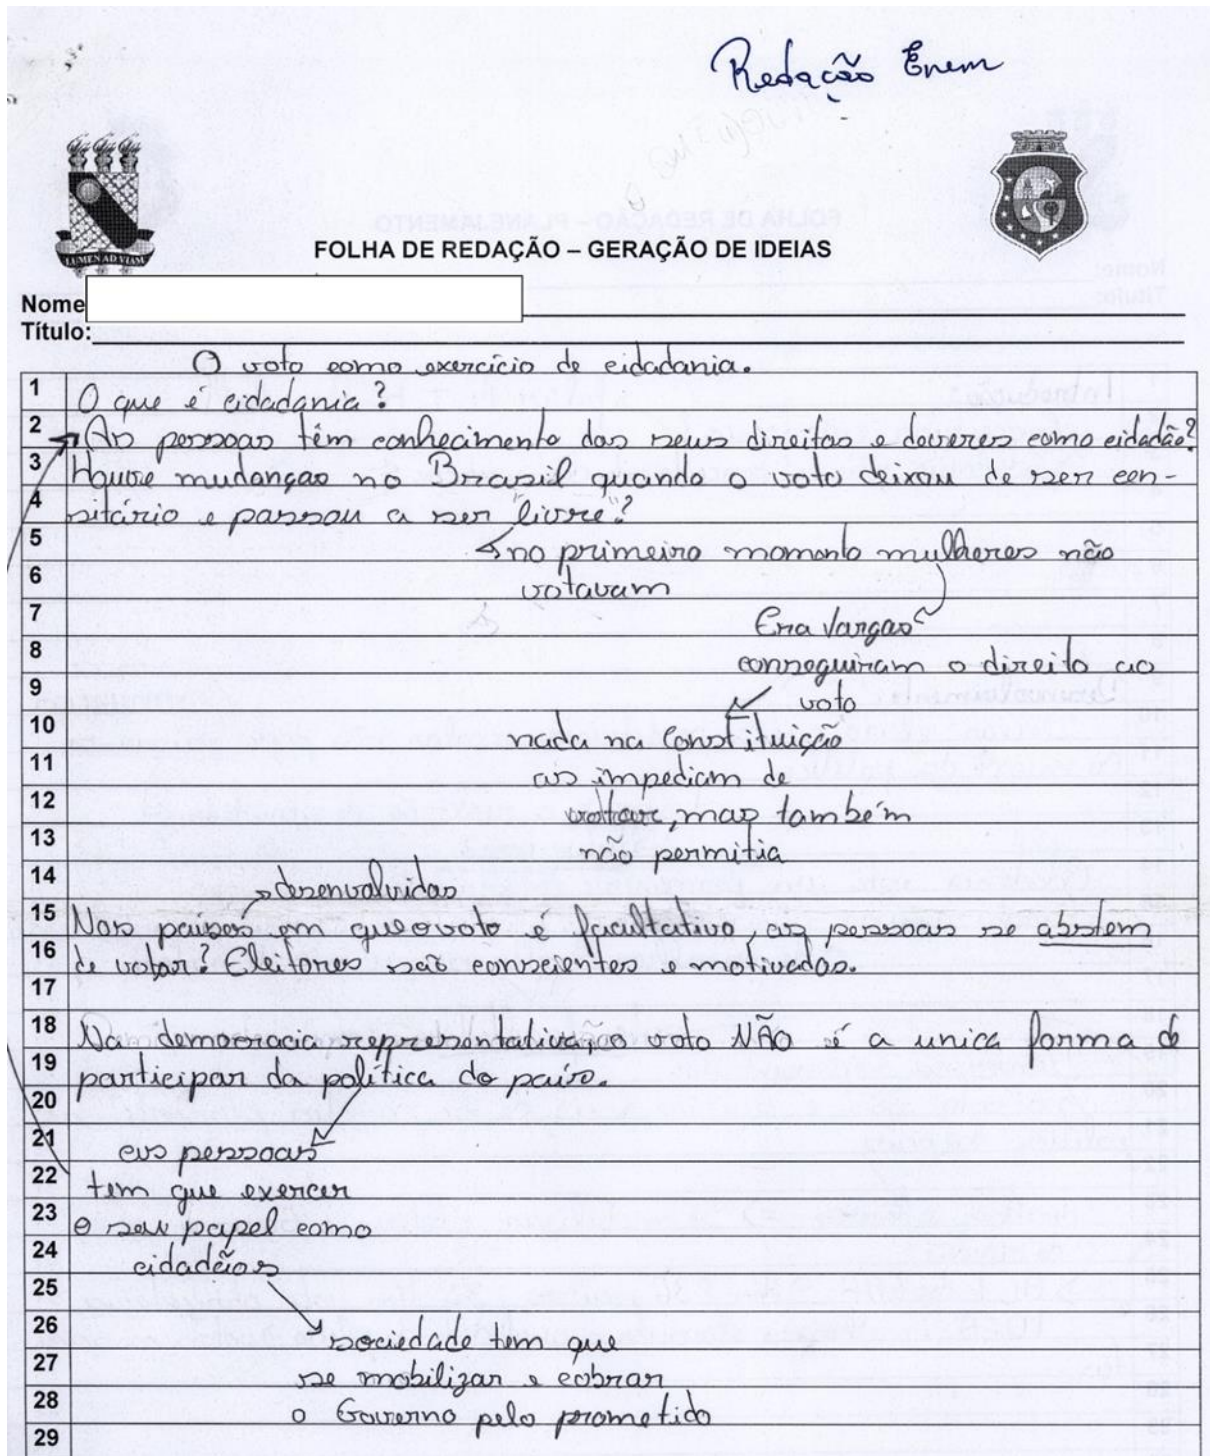 Redação Enem
LUMEN AD VIAM
FOLHA DE REDAÇÃO – GERAÇÃO DE IDEIAS
Nome
Título:
O voto como exercício de cidadania.
1 O que é cidadania?
2 As pessoas têm conhecimento dos seus direitos e deveres como cidadão?
3 Houve mudanças no Brasil quando o voto deixou de ser cen-
4 sitário e passou a ser "livre"?
5 no primeiro momento mulheres não
6 votavam
7 Era Vargas
8 conseguiram o direito ao
9 voto
10 nada na Constituição
11 as impediam de
12 voltar, mas também
13 não permitia
14 desenvolvidos
15 Nos países em que o voto é facultativo, as pessoas se abstem
16 de votar? Eleitores são conscientes e motivados.
17
18 Na democracia representativa, o voto NÃO é a unica forma de
19 participar da política do país.
20
21 as pessoas
22 tem que exercer
23 o seu papel como
24 cidadãos
25
26 sociedade tem que
27 se mobilizar e cobrar
28 o Governo pelo prometido
29